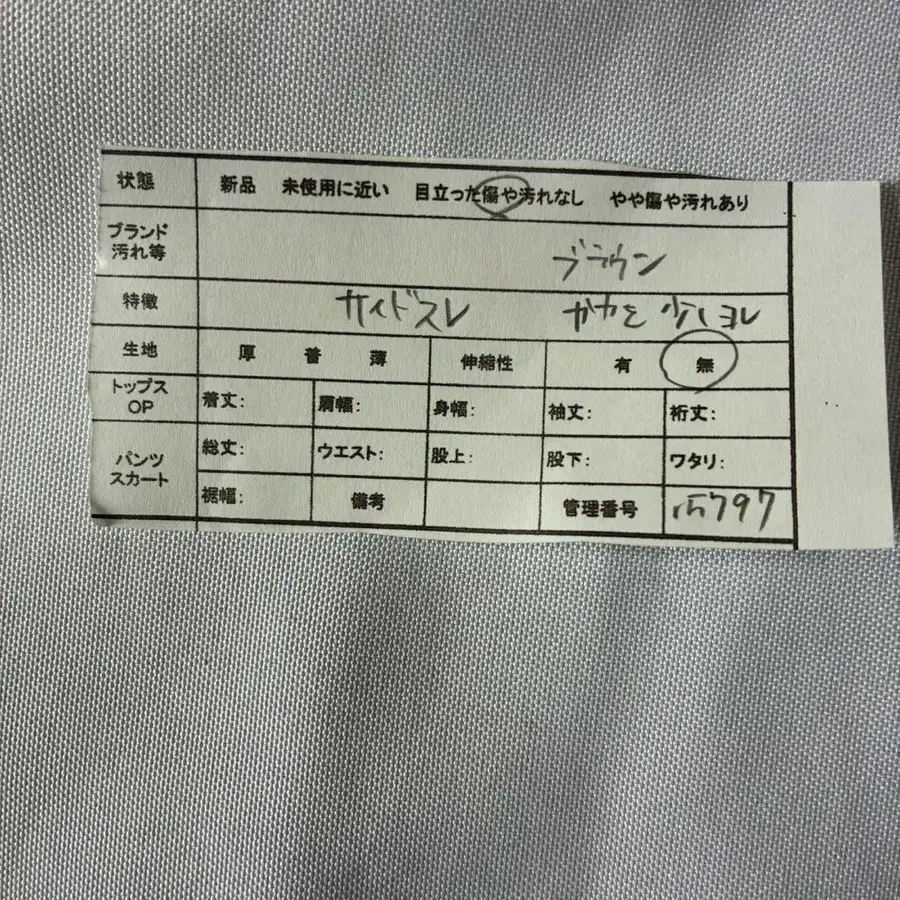 状態 新品 未使用に近い 目立った傷や汚れなし やや傷や汚れあり
ブランド
汚れ等 ブラウン
特徴 サイドスレ かかと 少しヨレ
生地 厚 普 薄 伸縮性 有 無
トップス
OP 着丈: 肩幅: 身幅: 袖丈: 裄丈:
パンツ
スカート 総丈: ウエスト: 股上: 股下: ワタリ:
裾幅: 備考 管理番号 797